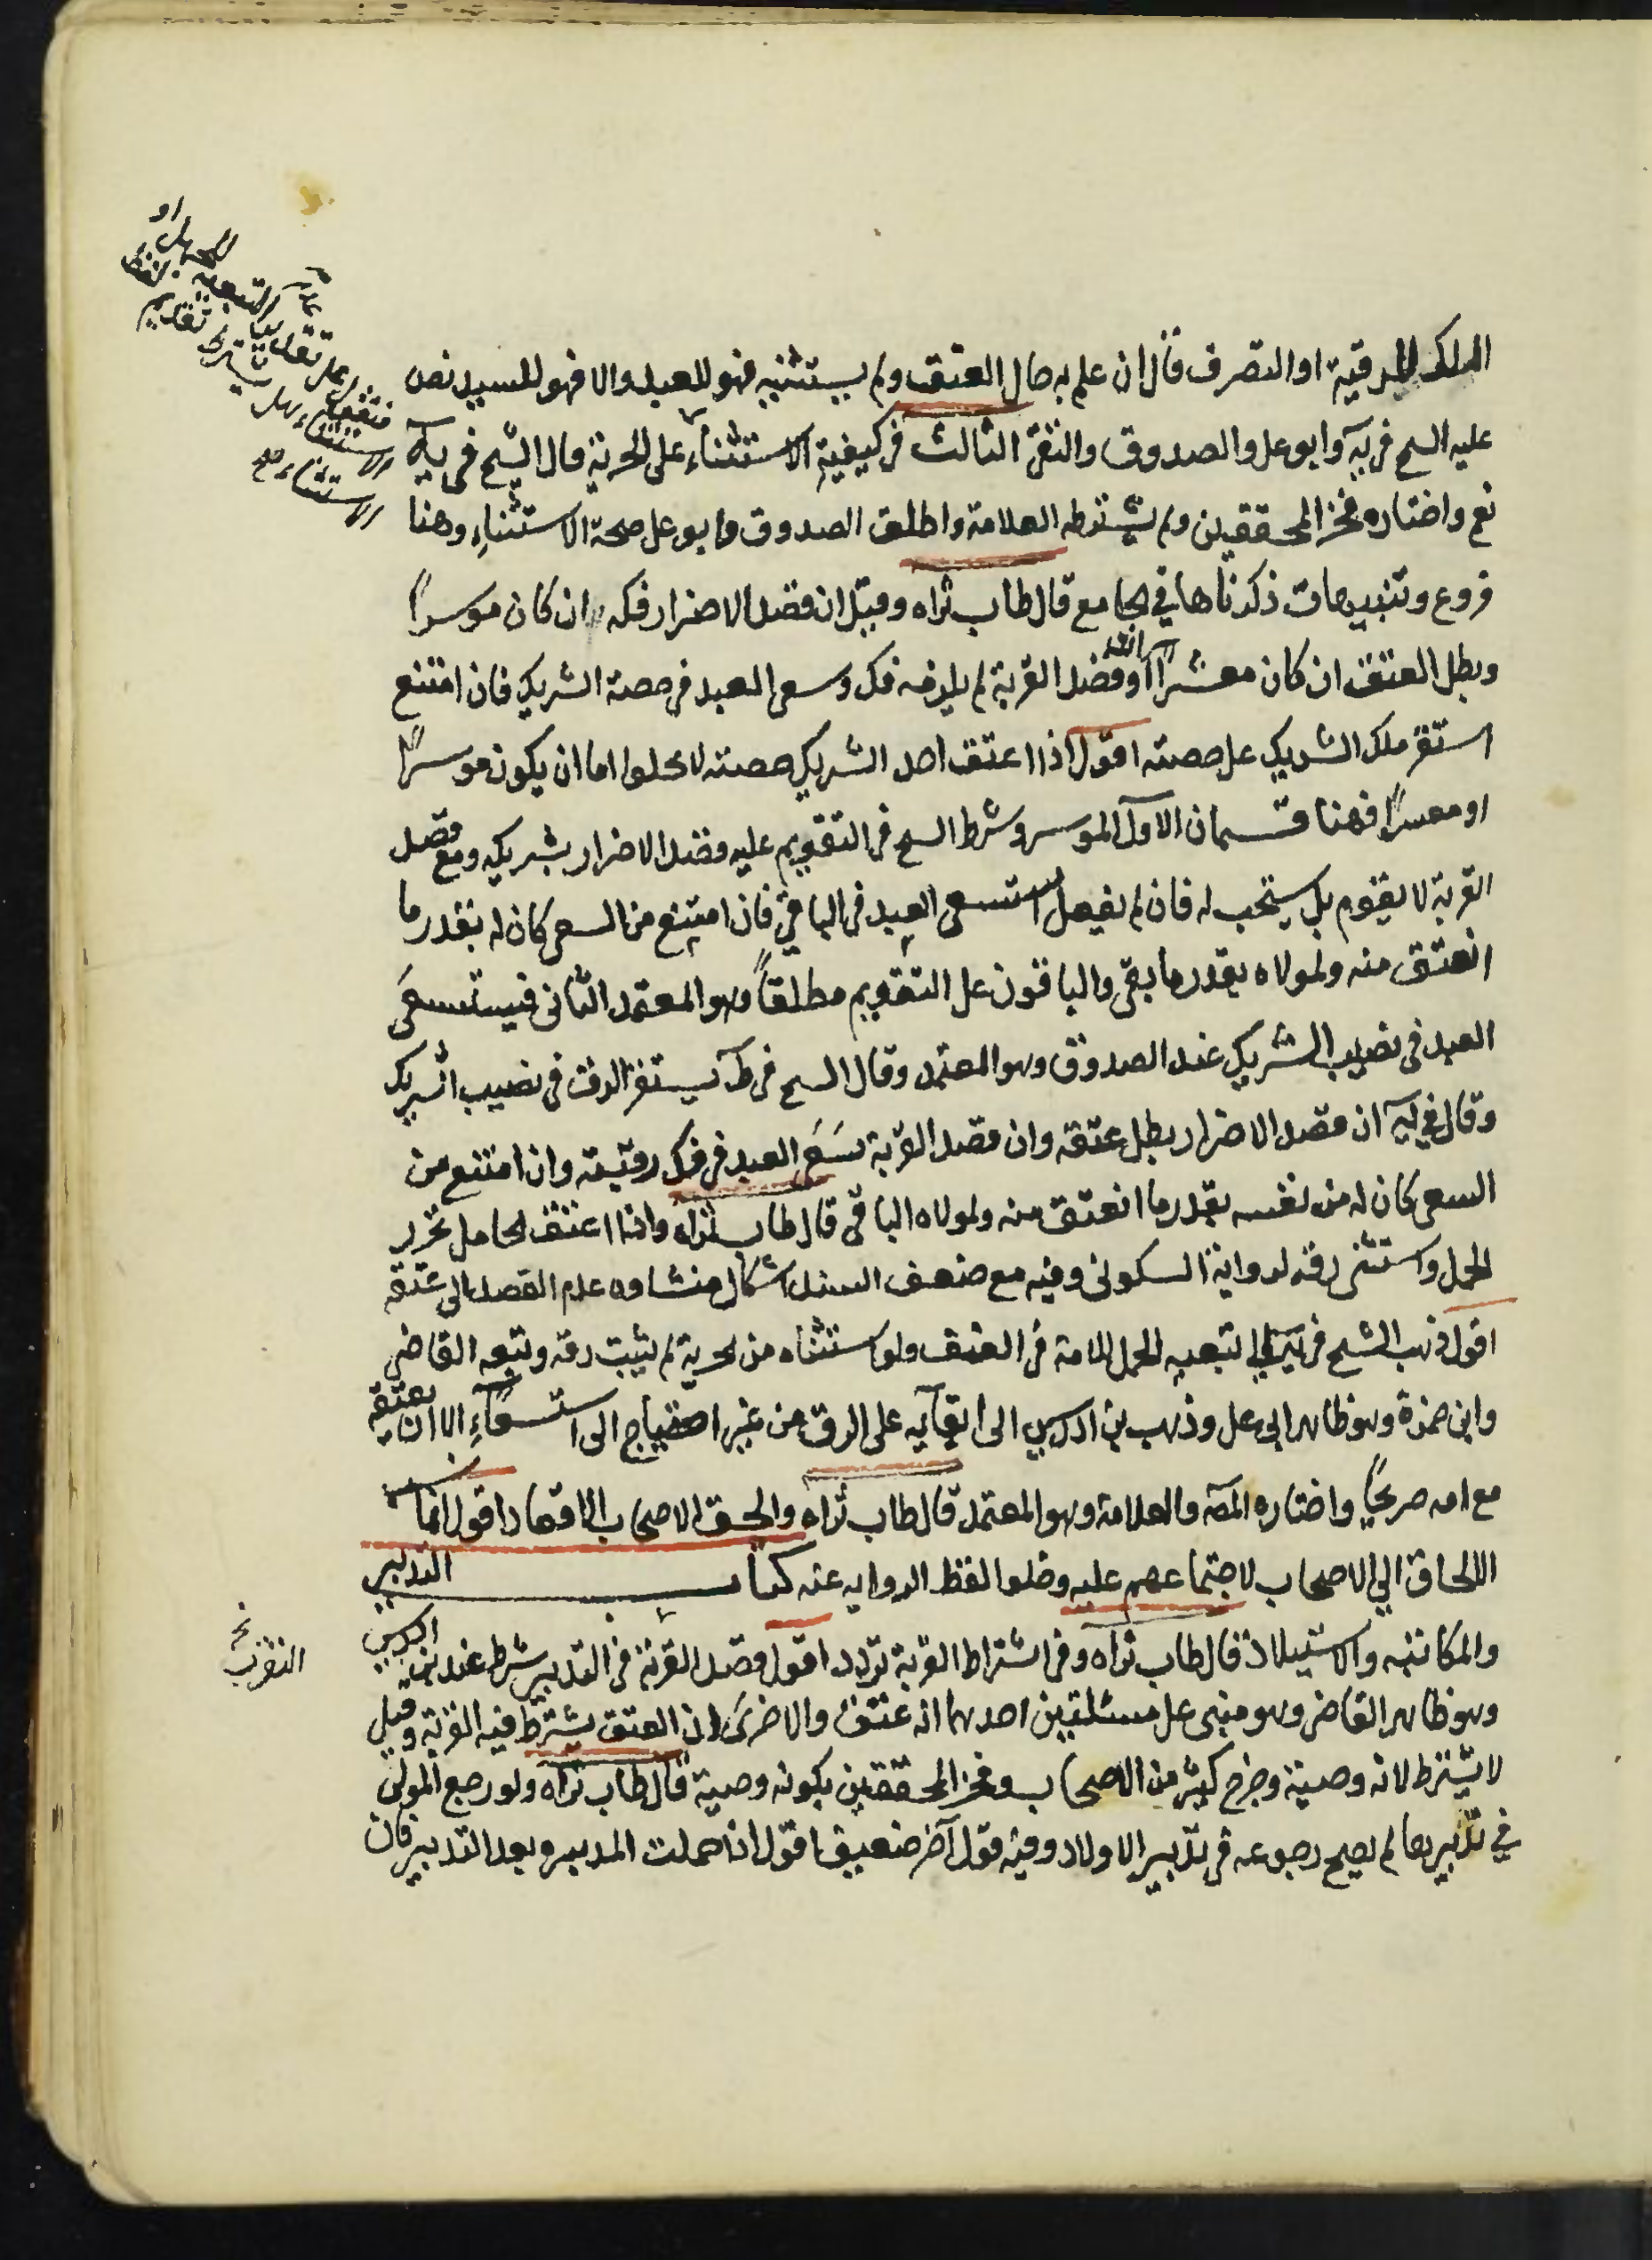 الملك للرقية او التصرف قال ان علم به حال العتق ولم يستثنيه فهو للعبد والا فهو للسيد نص
عليه الشيخ في يه وابو علي والصدوق والتقي الثالث في كيفية الاستثناء على الحرية قال الشيخ في يه
نعم واختاره فخر المحققين ولم يشترطه العلامة واطلق الصدوق وابو علي صحة الاستثناء وهنا
فروع وتنبيهات ذكرناها في الجامع قال طاب ثراه وقيل ان قصد الاضرار فكه ان كان موسراً
وبطل العتق ان كان معسراً وقصد القربة لم يلزمه فكه وسعى العبد في حصة الشريك فان امتنع
استقر ملك الشريك على حصته اقول اذا اعتق احد الشريك حصته لا يخلوا اما ان يكون موسراً
او معسراً فهنا قسمان الاول الموسر وشرط الشيخ في التقويم عليه قصد الاضرار بشريكه ومع قصد
القربة لا يقوم بل يستحب له فان لم يفعل استسعى العبد في الباقي فان امتنع من السعي كان له بقدر ما
انعتق منه ولمولاه بقدر ما بقي والباقون على التقويم مطلقاً وهو المعتمد الثاني فيستسعى
العبد في نصيب الشريك عند الصدوق وهو المعتمد وقال الشيخ في ط يستقر الرق في نصيب الشريك
وقال في يه ان قصد الاضرار بطل عتقه وان قصد القربة سعى العبد في فك رقبته وان امتنع من
السعي كان له من نفسه بقدر ما انعتق منه ولمولاه الباقي قال طاب ثراه واذا اعتق الحامل تحرر
الحمل ولو استثنى رقه لرواية السكوني وفيه مع ضعف السند اشكال منشاوه عدم القصد الى عتقه
اقول ذهب الشيخ في يه الى تبعيه الحمل للامة في العتق ولو استثناه من الحرية لم يثبت رقه وتبعه القاضي
وابن حمزة وهو ظاهر ابي علي وذهب بن ادريس الى ابقآيه على الرق من غير احتياج الى استثنآءِ الا ان يعتقه
مع امه صريحاً واختاره المصَ والعلامة وهو المعتمد قال طاب ثراه والحق الاصحاب الاقعاد اقول انما نسب
الالحاق الى الاصحاب لاجتماعهم عليه وخلوا لفظ الروايه عنه كتاب التدبير
والمكاتبه والاستيلاد قال طاب ثراه وفي اشتراط القربة تردد اقول قصد القربة في التدبير شرط عند بن ادريس
وهو ظاهر القاضي وهو مبني على مسئلتين احدهما انه عتق والاخرى ان العتق يشترط فيه القربة وقيل
لا يشترط لانه وصية وخرج كثير من الاصحاب وفخر المحققين بكونه وصية قال طاب ثراه ولو رجع المولى
في تدبيرها لم يصح رجوعه في تدبير الاولاد وفيه قول آخر ضعيف اقول اذا حملت المدبره بعد التدبير فان
التقرب